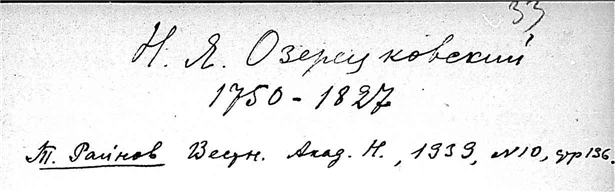 33
Н. Я. Озерецковский
1750 - 1827
Т. Райнов Вестн. Акад. Н., 1939, №10, стр 136.